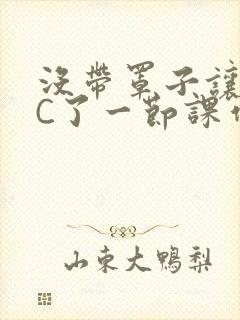 没帶罩子讓
C了一節課
山東大鴨梨